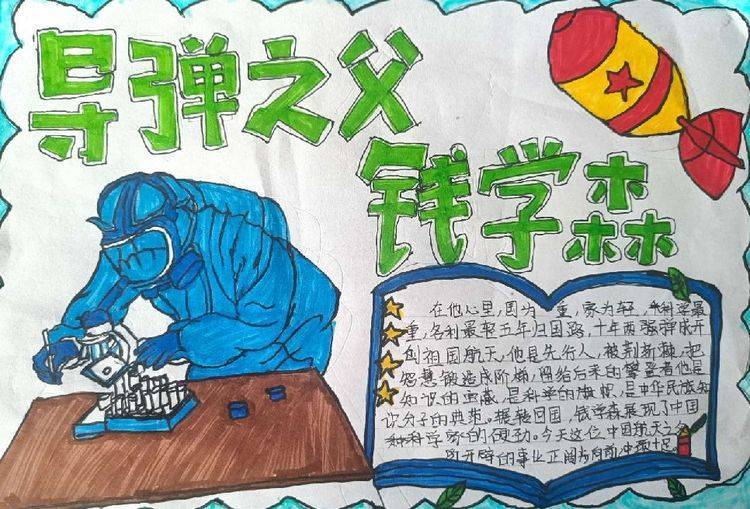 导弹之父
钱学森
在他心里，国为重，家为轻，科学最
重，名利最轻五年归国路，十年两弹成开
创祖国航天，他是先行人，荆斩棘，把
智慧锻造成阶梯，留给后来的攀登者他是
知识的宝藏，是科学的旗帜，是中华民族知
识分子的典范。辗转回国，钱学森展现了中国
科学家的硬劲。今天这位中国航天之父
开辟的事业正阔步向前，十足